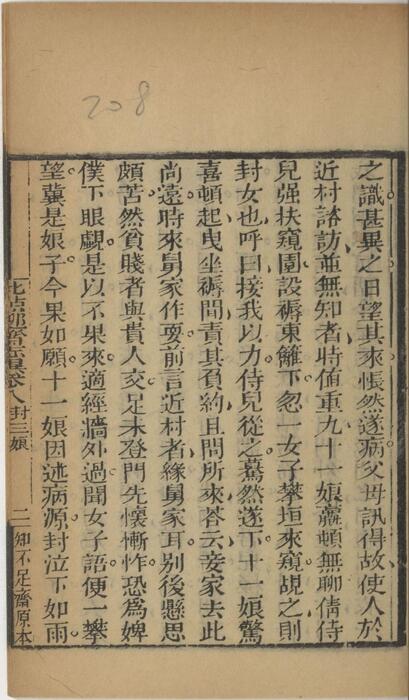 208
之識甚異之日望其來悵然遂病父母訊得故使人於
近村諮訪並無知者時值重九十一娘羸頓無聊倩侍
兒强扶窺園設褥東籬下忽一女子攀垣來窺覘之則
封女也呼曰接我以力侍兒從之驀然遂下十一娘驚
喜頓起曳坐褥間責其負約且問所來荅云妾家去此
尚遠時來舅家作耍前言近村者緣舅家耳別後懸思
頗苦然貧賤者與貴人交足未登門先懷慚怍恐爲婢
僕下眼覷是以不果來適經牆外過聞女子語便一攀
望冀是娘子今果如願十一娘因述病源封泣下如雨
卷八封三娘
二知不足齋原本